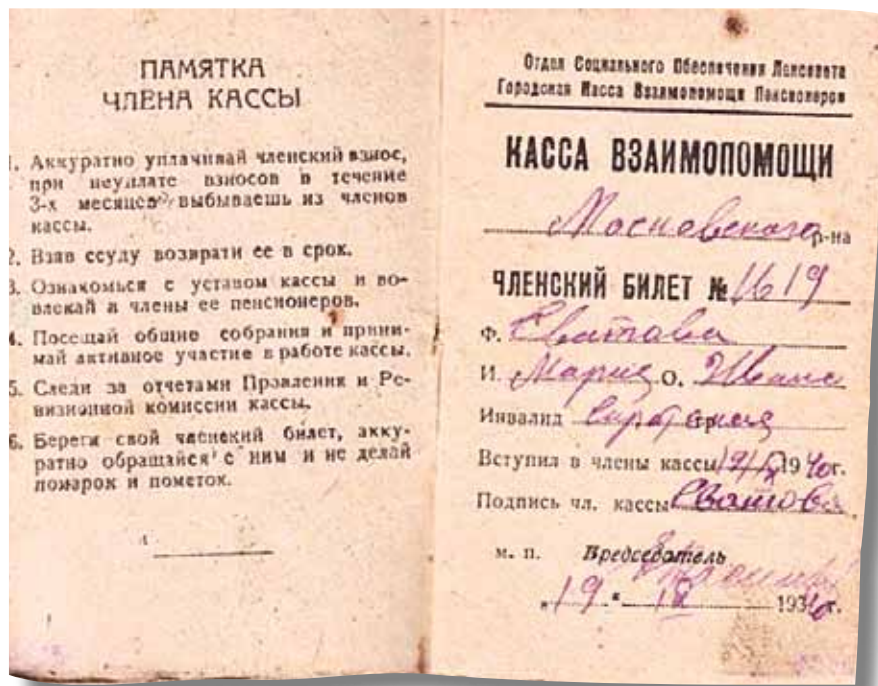 ПАМЯТКА
ЧЛЕНА КАССЫ
1. Аккуратно уплачивай членский взнос,
при неуплате взносов в течение
3-х месяцев выбываешь из членов
кассы.
2. Взяв ссуду возврати ее в срок.
3. Ознакомься с уставом кассы и во-
влекай в члены ее пенсионеров.
4. Посещай общие собрания и прини-
май активное участие в работе кассы.
5. Следи за отчетами Правления и Ре-
визионной комиссии кассы.
6. Береги свой членский билет, акку-
ратно обращайся с ним и не делай
помарок и пометок.
Отдел Социального Обеспечения Ленсовета
Городская Касса Взаимопомощи Пенсионеров
КАССА ВЗАИМОПОМОЩИ
Московского р-на
ЧЛЕНСКИЙ БИЛЕТ № 1619
Ф. Сватова
И. Мария О. Иван
Инвалид гр.
Вступил в члены кассы 19/IX 1940г.
Подпись чл. кассы Сватова
м. п. Председатель
„19“ IX 1940г.